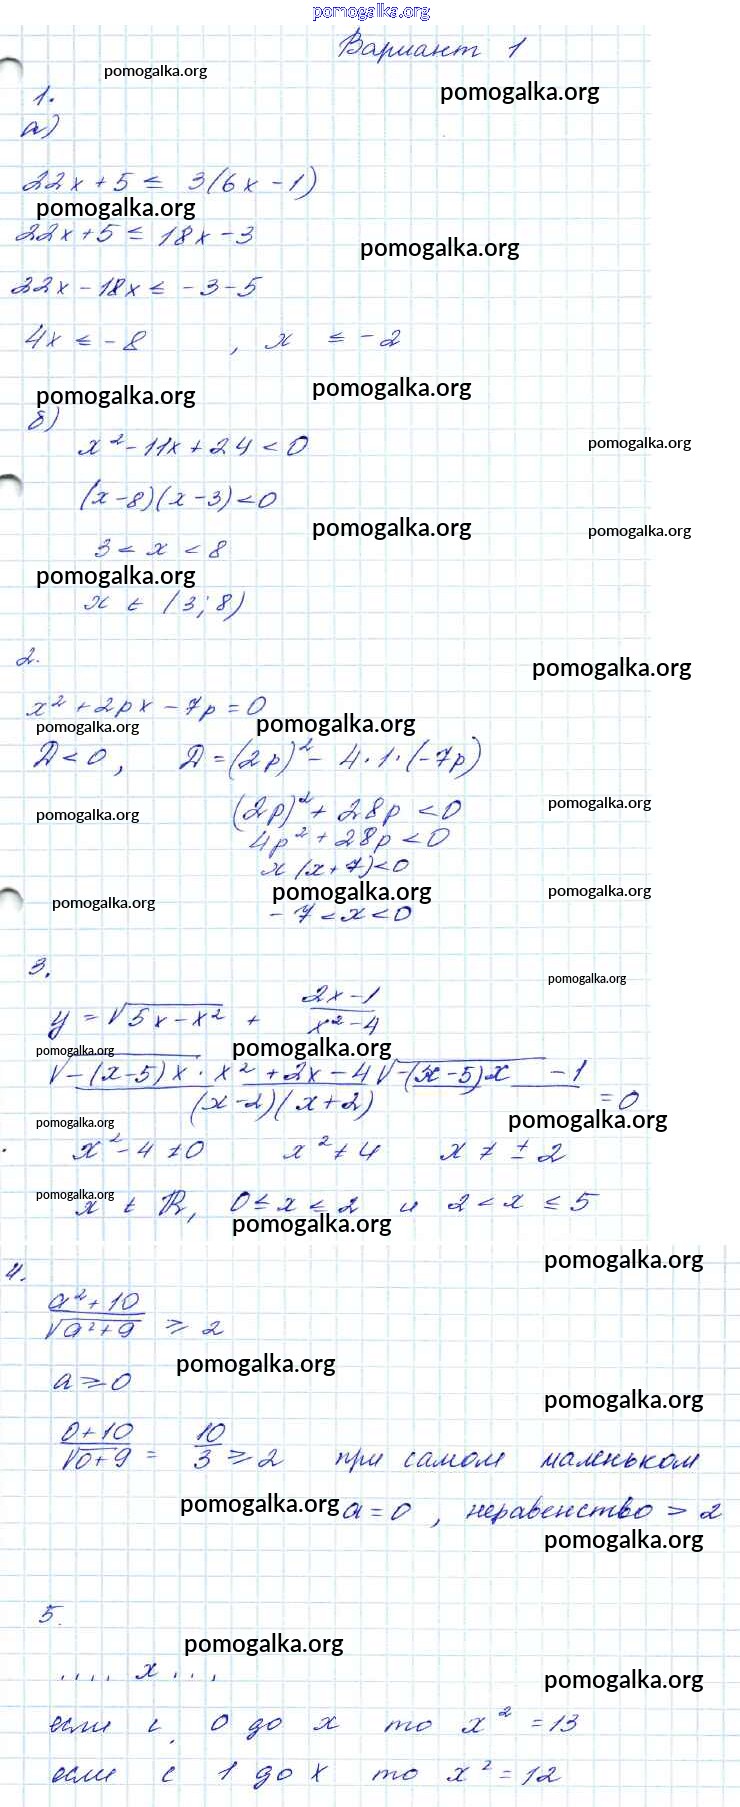 pomogalka.org
Вариант 1
pomogalka.org
pomogalka.org
1.
а)
22x + 5 ≤ 3(6x - 1)
pomogalka.org
22x + 5 ≤ 18x - 3
pomogalka.org
22x - 18x ≤ -3 - 5
4x ≤ -8 , x ≤ -2
pomogalka.org
pomogalka.org
б)
x² - 11x + 24 < 0
pomogalka.org
(x - 8)(x - 3) < 0
pomogalka.org
pomogalka.org
3 < x < 8
pomogalka.org
x ∈ (3; 8)
2.
pomogalka.org
x² + 2px - 7p = 0
pomogalka.org
pomogalka.org
D < 0, D = (2p)² - 4·1·(-7p)
pomogalka.org
pomogalka.org
(2p)² + 28p < 0
4p² + 28p < 0
x(x + 7) < 0
pomogalka.org
pomogalka.org
pomogalka.org
-7 < x < 0
3.
pomogalka.org
y = √(5x - x²) + (2x - 1)/(x² - 4)
pomogalka.org
pomogalka.org
(√(-(x - 5)x) · x² + 2x - 4√(-(x - 5)x) - 1)/((x - 2)(x + 2)) = 0
pomogalka.org
pomogalka.org
x² - 4 ≠ 0 x² ≠ 4 x ≠ ± 2
pomogalka.org
x ∈ R, 0 ≤ x ≤ 2 и 2 < x ≤ 5
pomogalka.org
pomogalka.org
4.
(a² + 10)/√(a² + 9) ≥ 2
pomogalka.org
a ≥ 0
pomogalka.org
(0 + 10)/√(0 + 9) = 10/3 ≥ 2 при самом маленьком
pomogalka.org
a = 0, неравенство > 2
pomogalka.org
5.
pomogalka.org
.... x ...
pomogalka.org
если с 0 до x то x² = 13
если с 1 до x то x² = 12